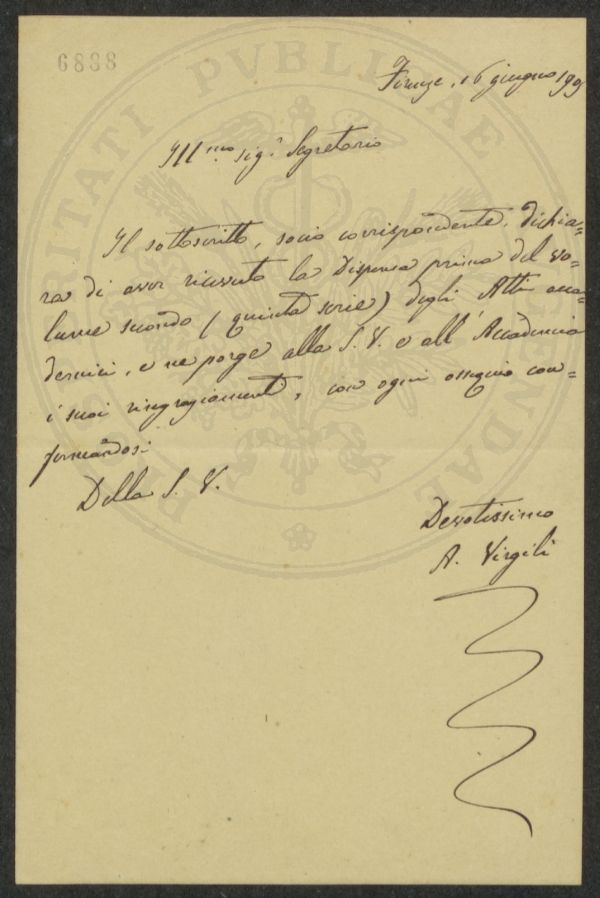 6888
Firenze, 16 giugno 190
Ill.mo sig.r Segretario
Il sottoscritto, socio corrispondente, dichia=
ra di aver ricevuto la Dispensa prima del vo=
lume secondo (quinta serie) degli Atti acca=
demici, e ne porge alla S. V. e all'Accademia
i suoi ringraziamenti, con ogni ossequio con=
fermandosi
Della S. V.
Devotissimo
A. Virgili
PROSPERITATI PVBLICAE AVGENDAE